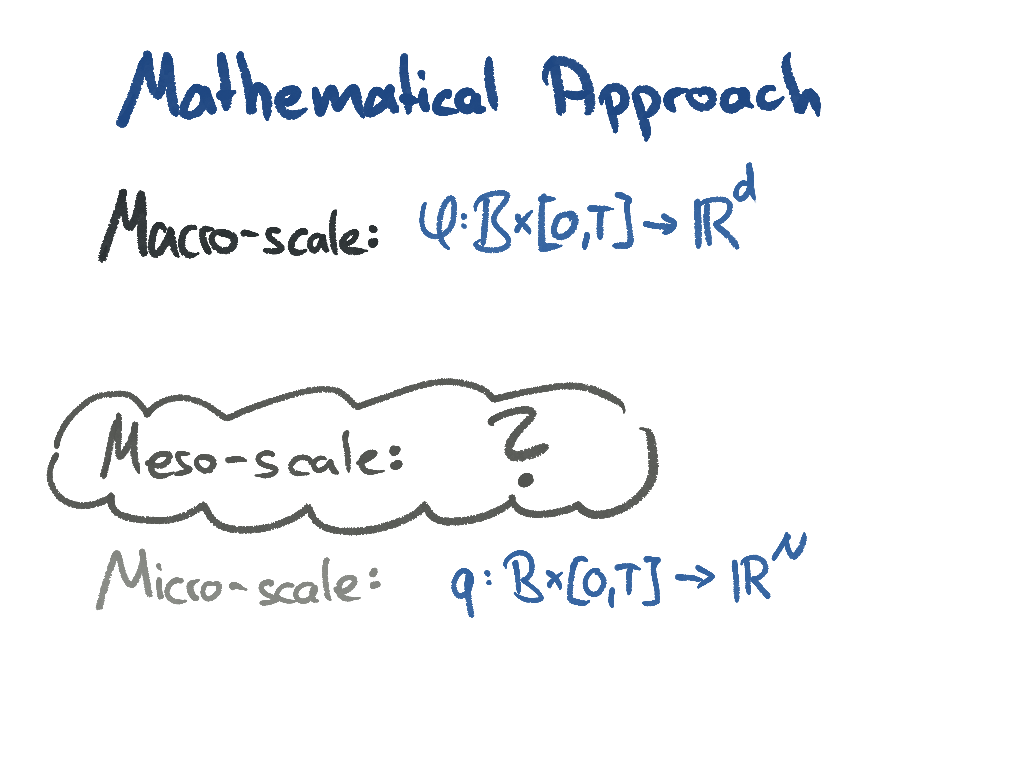 Mathematical Approach
Macro-scale: φ: B×[0,T] → ℝᵈ
Meso-scale: ?
Micro-scale: q: B×[0,T] → ℝᴺ